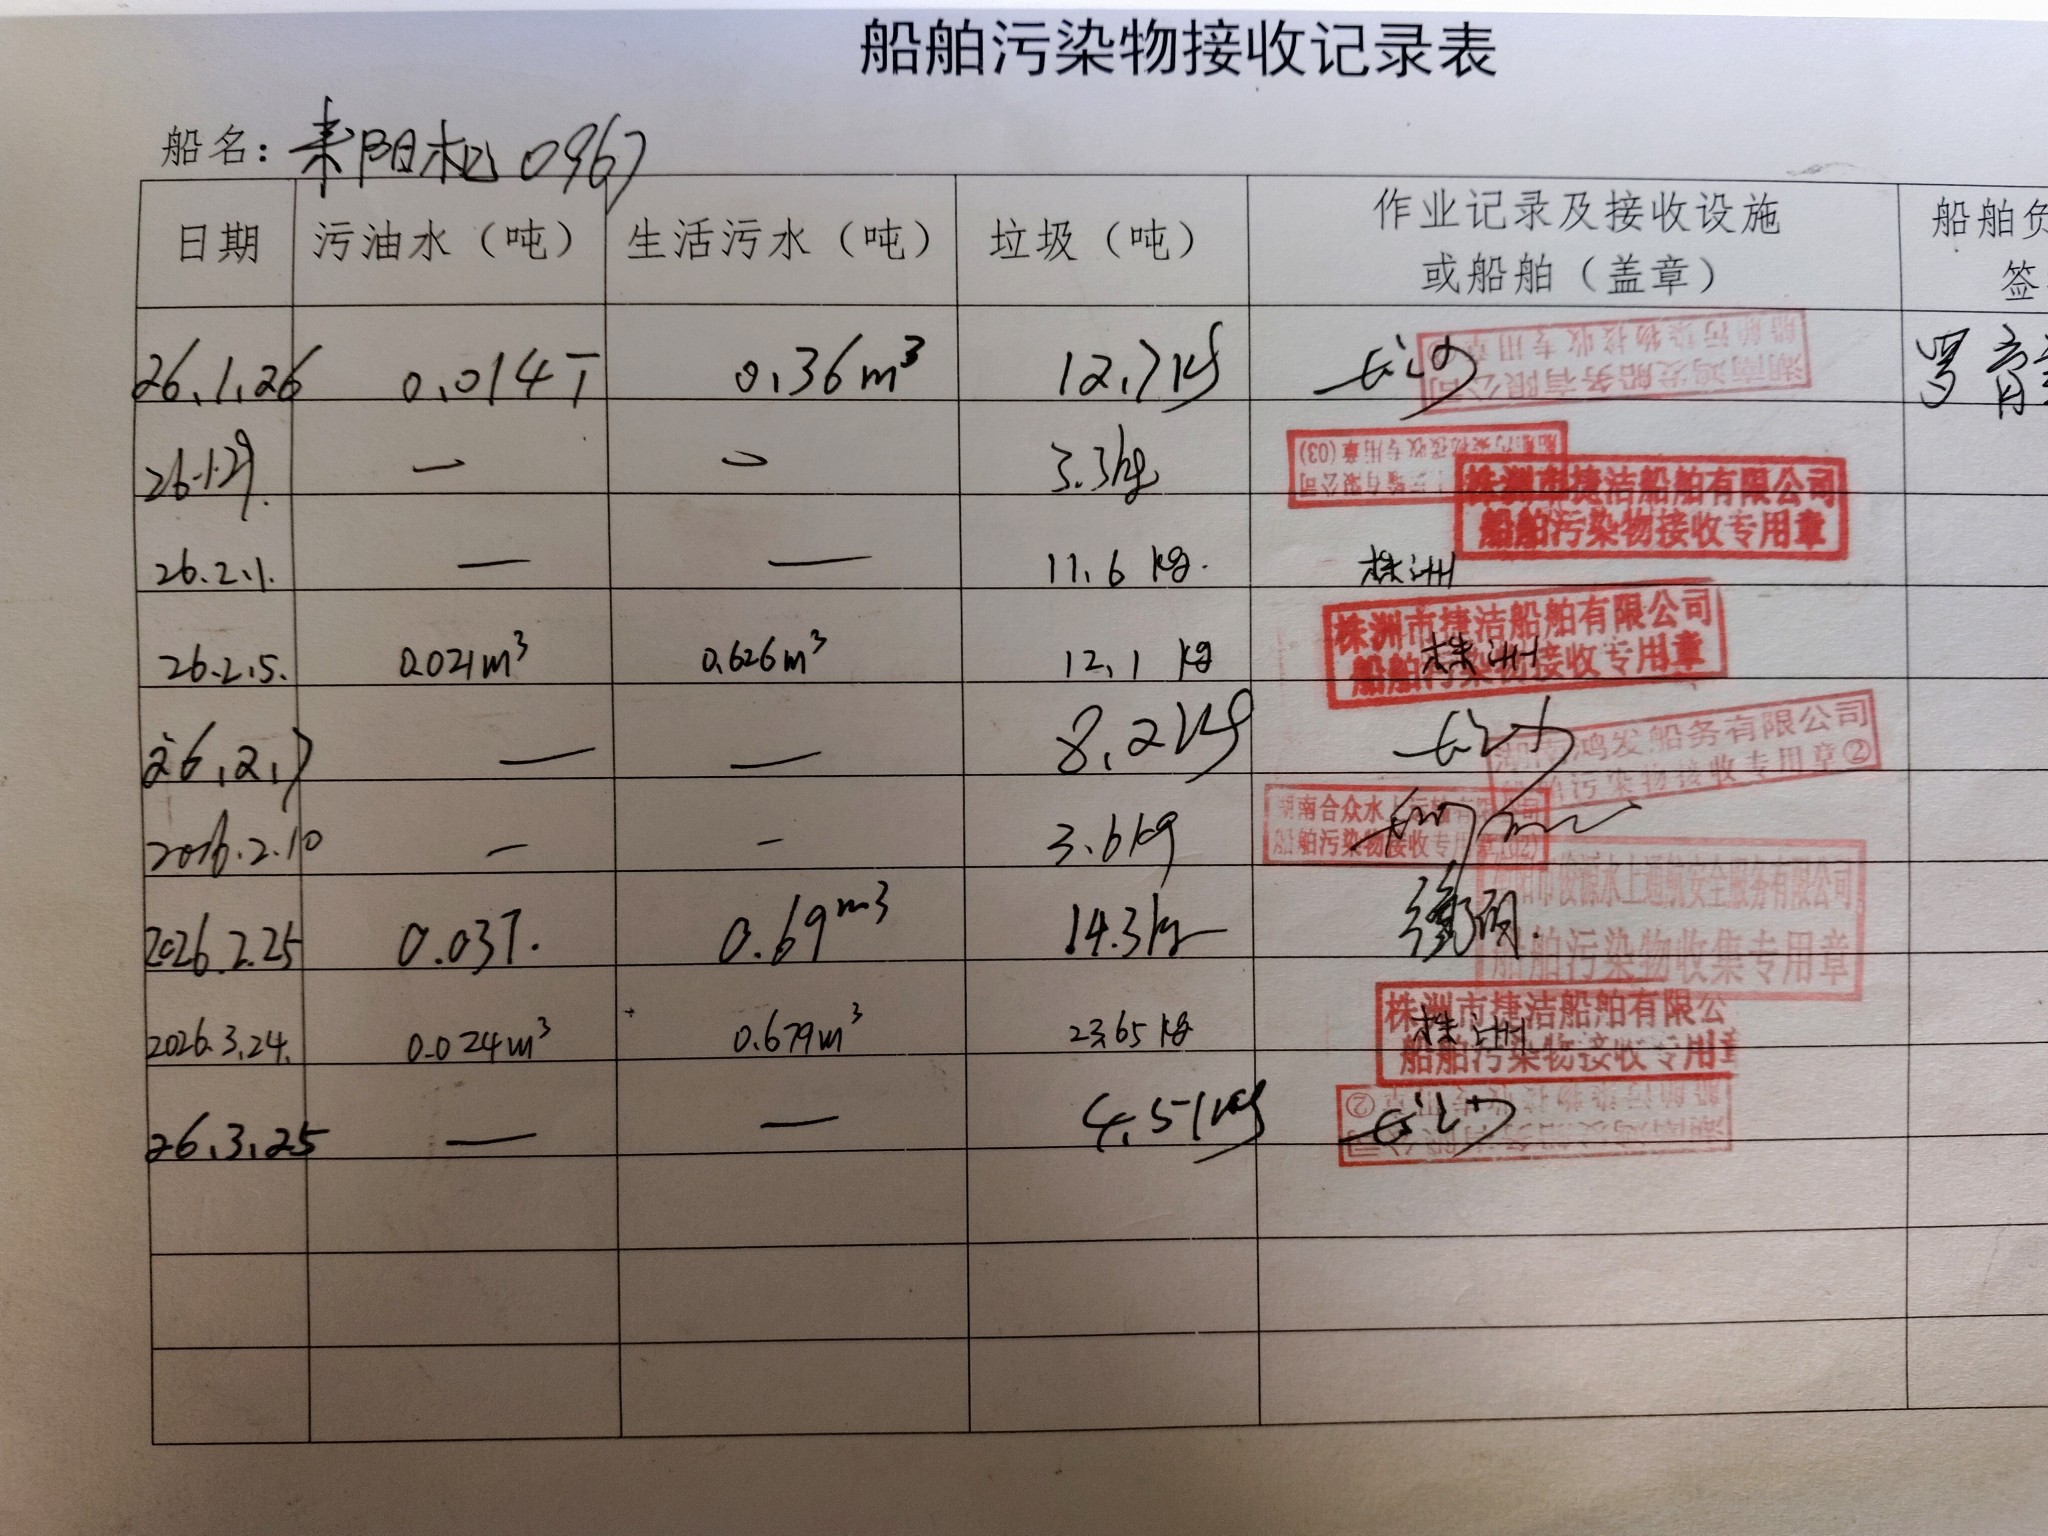 船舶污染物接收记录表
船名：耒阳机0967
日期 污油水（吨） 生活污水（吨） 垃圾（吨） 作业记录及接收设施或船舶（盖章） 船舶负 签
26.1.26 0.014T 0.36m³ 12.7kg 长沙 湖南鸿发船务有限公司 船舶污染物接收专用章 罗育
26.1.29. — — 3.3kg 船舶污染物接收专用章(03)
26.2.1. — — 11.6 kg. 株洲 株洲市捷洁船舶有限公司 船舶污染物接收专用章
26.2.5. 0.021m³ 0.626m³ 12.1 kg 株洲 株洲市捷洁船舶有限公司 船舶污染物接收专用章
26.2.7 — — 8.2kg 长沙 湖南鸿发船务有限公司 船舶污染物接收专用章②
2026.2.10 — — 3.6kg 湖南合众水上运输有限公司 船舶污染物接收专用章(02)
2026.2.25 0.03T. 0.69m³ 14.3kg 衡阳. 水上通航安全服务有限公司 船舶污染物收集专用章
2026.3.24. 0.024m³ 0.679m³ 23.65kg 株洲 株洲市捷洁船舶有限公 船舶污染物接收专用章
26.3.25 — — 4.51kg 长沙 湖南鸿发船务有限公司 船舶污染物接收专用章②